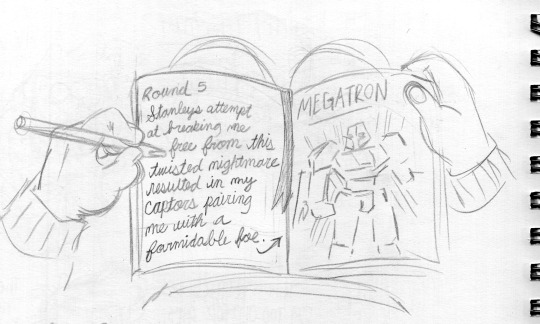 Round 5
Stanleys attempt
at breaking me
free from this
twisted nightmare
resulted in my
captors pairing
me with a
formidable foe.
MEGATRON